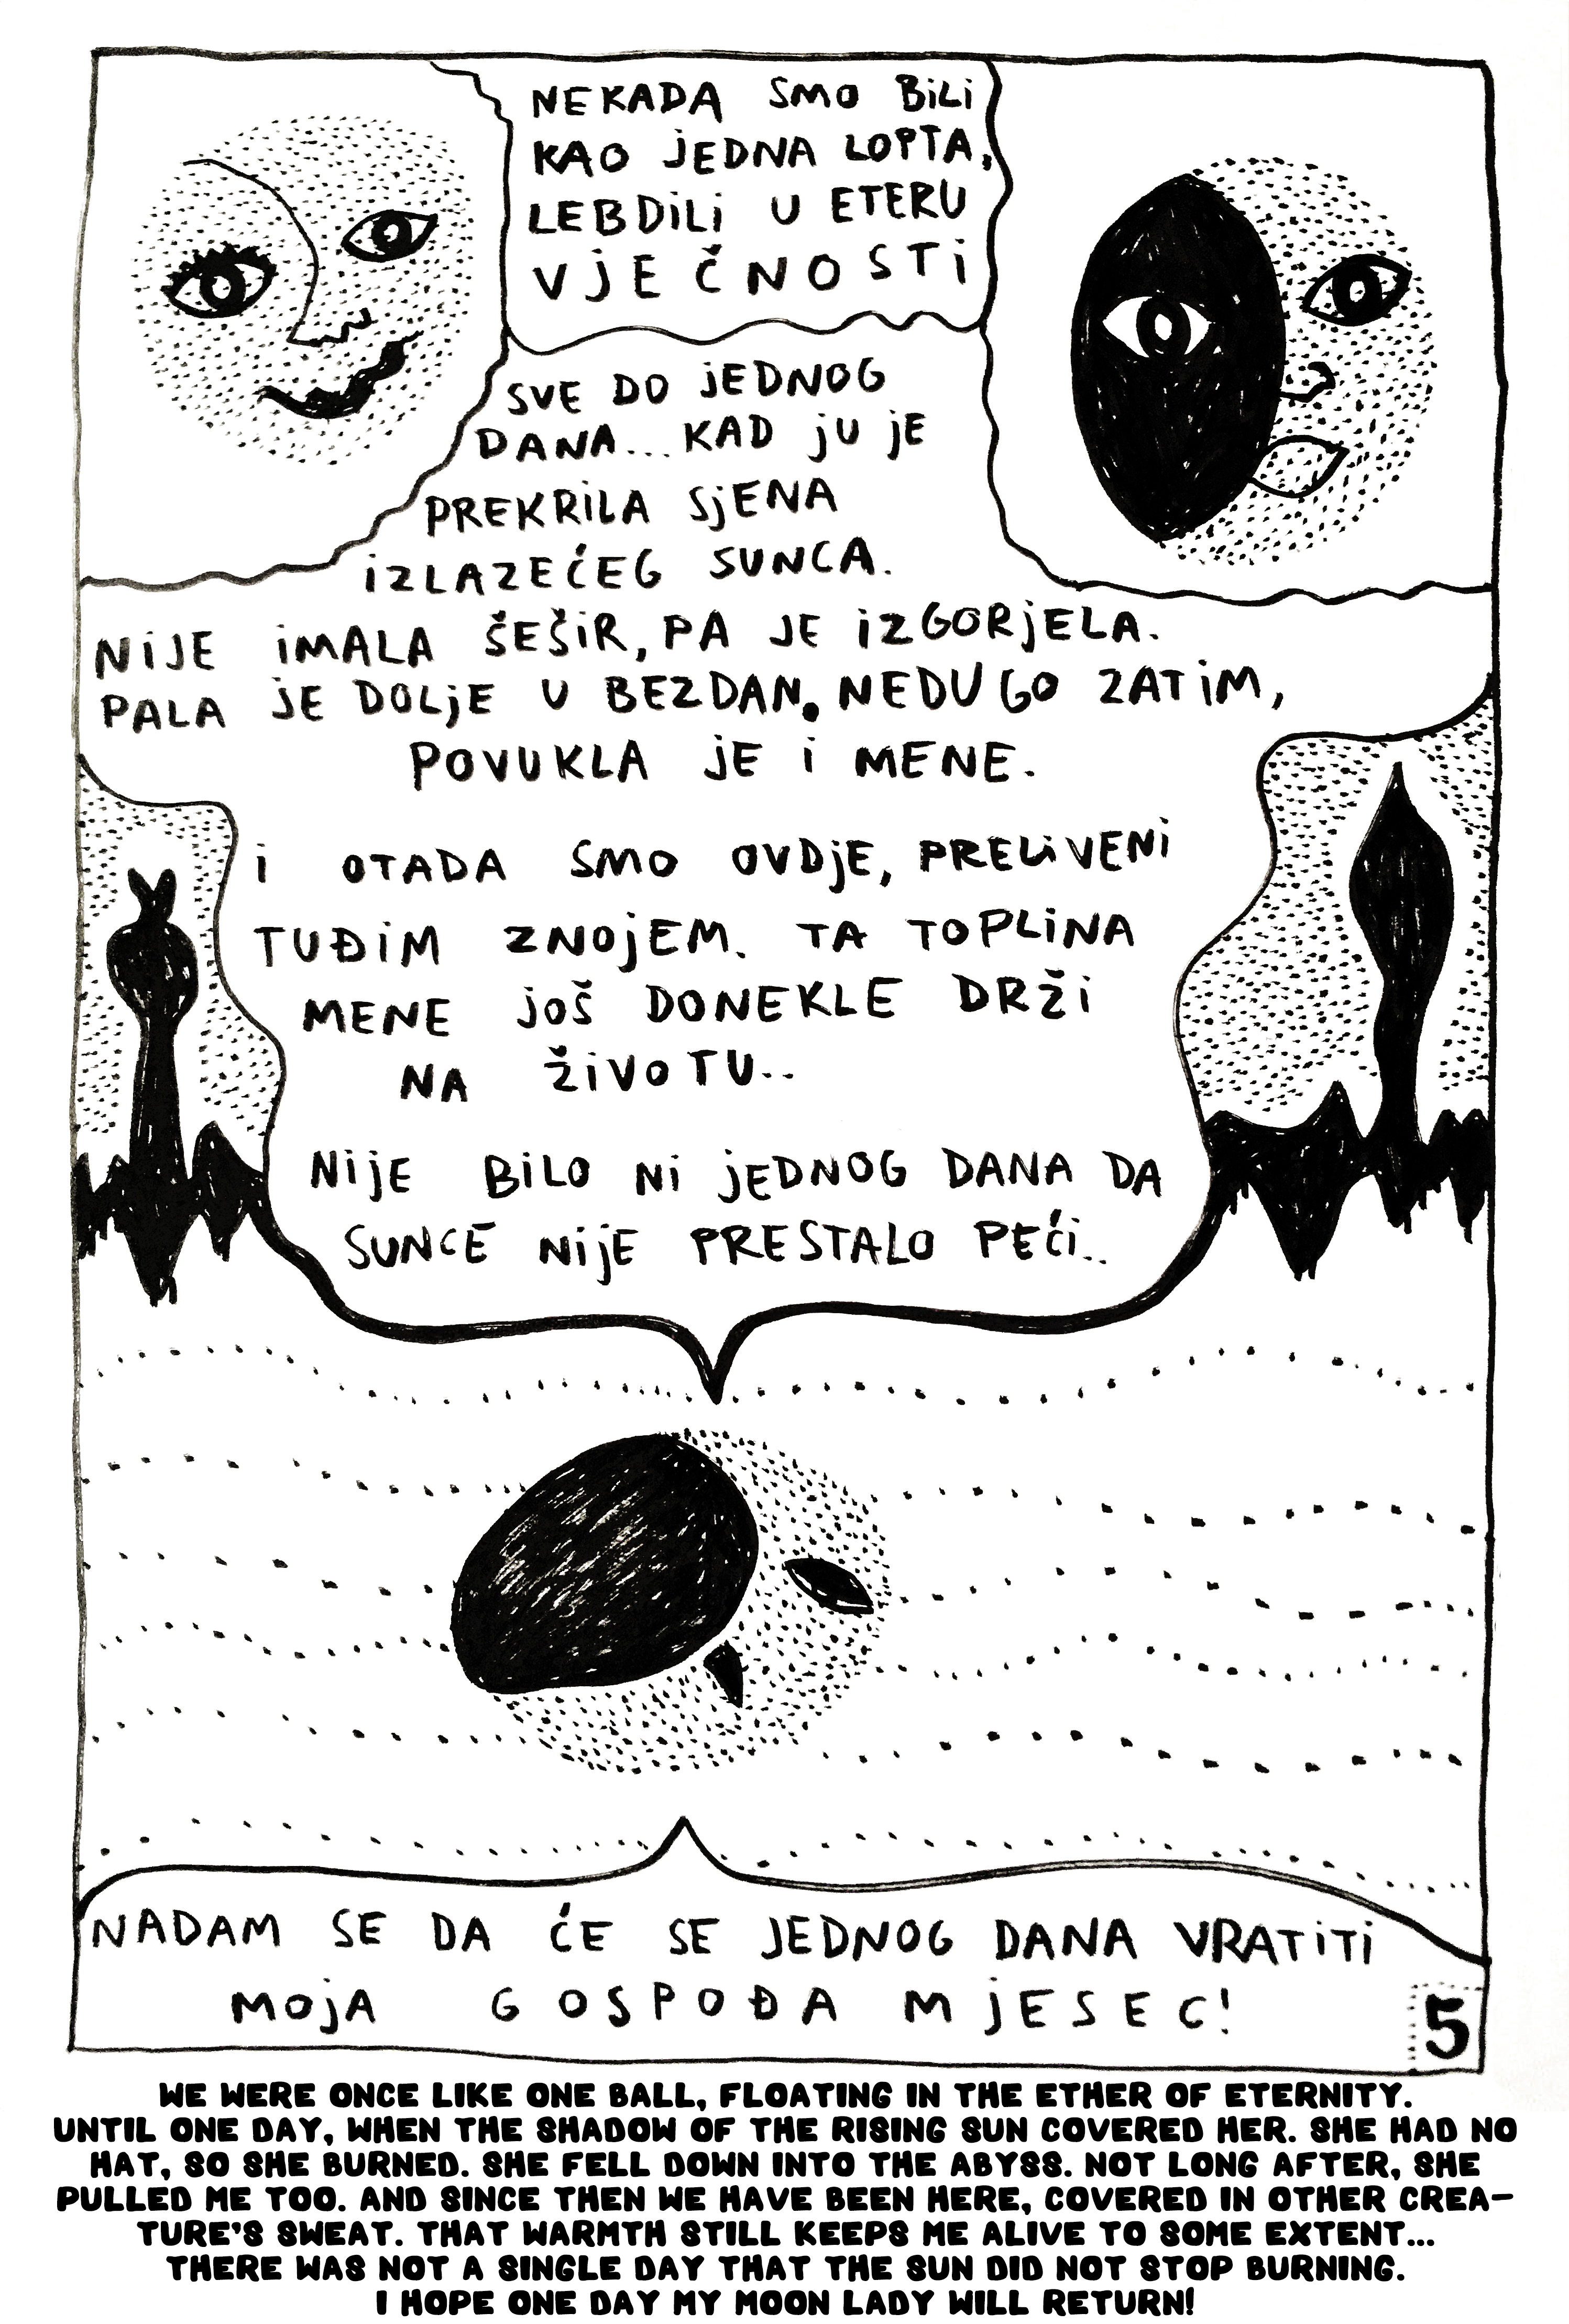 NEKADA SMO BILI
KAO JEDNA LOPTA,
LEBDILI U ETERU
VJEČNOSTI
SVE DO JEDNOG
DANA... KAD JU JE
PREKRILA SJENA
IZLAZEĆEG SUNCA.
NIJE IMALA ŠEŠIR, PA JE IZGORJELA.
PALA JE DOLJE U BEZDAN. NEDUGO ZATIM,
POVUKLA JE I MENE.
I OTADA SMO OVDJE, PRELIVENI
TUĐIM ZNOJEM. TA TOPLINA
MENE JOŠ DONEKLE DRŽI
NA ŽIVOTU..
NIJE BILO NI JEDNOG DANA DA
SUNCE NIJE PRESTALO PEĆI..
NADAM SE DA ĆE SE JEDNOG DANA VRATITI
MOJA GOSPOĐA MJESEC!
5
WE WERE ONCE LIKE ONE BALL, FLOATING IN THE ETHER OF ETERNITY.
UNTIL ONE DAY, WHEN THE SHADOW OF THE RISING SUN COVERED HER. SHE HAD NO
HAT, SO SHE BURNED. SHE FELL DOWN INTO THE ABYSS. NOT LONG AFTER, SHE
PULLED ME TOO. AND SINCE THEN WE HAVE BEEN HERE, COVERED IN OTHER CREA-
TURE'S SWEAT. THAT WARMTH STILL KEEPS ME ALIVE TO SOME EXTENT...
THERE WAS NOT A SINGLE DAY THAT THE SUN DID NOT STOP BURNING.
I HOPE ONE DAY MY MOON LADY WILL RETURN!